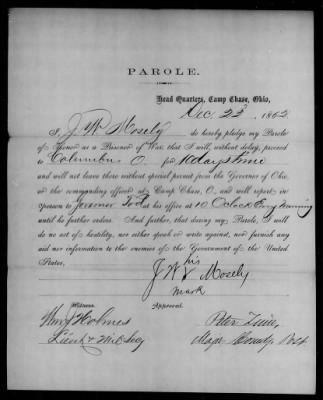 PAROLE.
Head Quarters, Camp Chase, Ohio,
Dec. 23 1862
I, J W Mosely do hereby pledge my Parole
of Honor as a Prisoner of War that I will, without delay, proceed
to Columbus O. for 10 days time
and will not leave there without special permit from the Governor of Ohio,
or the commanding officer at Camp Chase, O., and will report in
person to at his office at 10 Oclock Evry morning
until he further orders. And further, that during my Parole, I will
do no act of hostility, nor either speak or write against, nor furnish any
aid nor information to the enemies of the Government of the United
States.
his
J W X Mosely
mark
Witness Approval
Holmes
Lieut &
Peter
Major Comdg Post